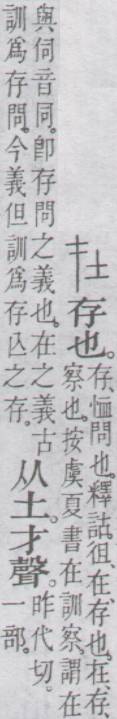 存也。
存、恤問也。釋詁徂、在、存也。在、存、
察也。按虞夏書在訓察、謂在
與伺音同。卽存問之義也。在之義古
訓爲存問。今義但訓爲存亾之存。
从土。才聲。
昨代切。
一部。